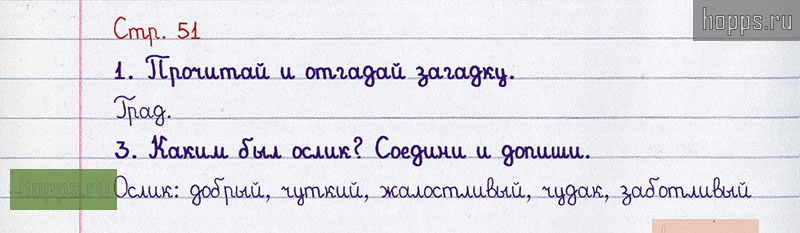 hopps.ru
Стр. 51
1. Прочитай и отгадай загадку.
Град.
3. Каким был ослик? Соедини и допиши.
hopps.ru
Ослик: добрый, чуткий, жалостливый, чудак, заботливый